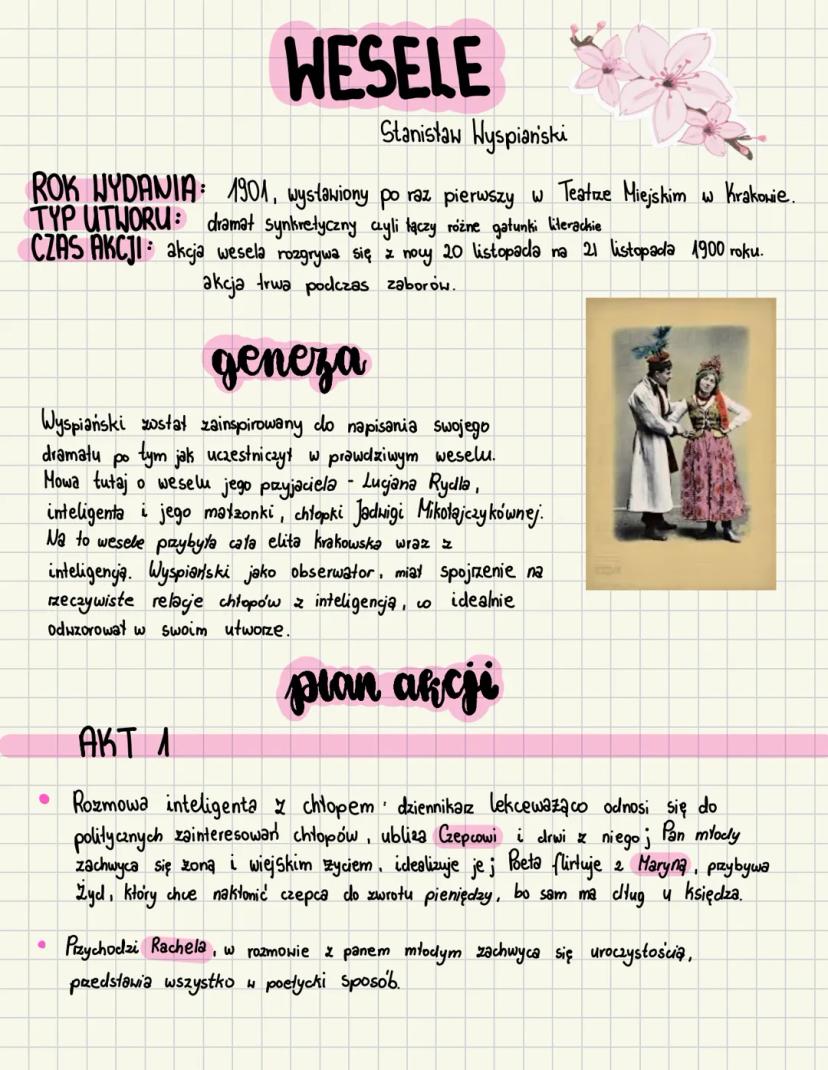 WESELE
Stanisław Wyspiański
ROK WYDANIA: 1901, wystawiony po raz pierwszy w Teatrze Miejskim w Krakowie.
TYP UTWORU: dramat synkretyczny czyli łączy różne gatunki literackie
CZAS AKCJI: akcja wesela rozgrywa się z nocy 20 listopada na 21 listopada 1900 roku.
akcja trwa podczas zaborów.
geneza
Wyspiański został zainspirowany do napisania swojego
dramatu po tym jak uczestniczył w prawdziwym weselu.
Mowa tutaj o weselu jego przyjaciela - Lucjana Rydla,
inteligenta i jego małżonki, chłopki Jadwigi Mikołajczykównej.
Na to wesele przybyła cała elita krakowska wraz z
inteligencją. Wyspiański jako obserwator, miał spojrzenie na
rzeczywiste relacje chłopów z inteligencją, co idealnie
odwzorował w swoim utworze.
plan akcji
AKT 1
• Rozmowa inteligenta z chłopem: dziennikarz lekceważąco odnosi się do
politycznych zainteresowań chłopów, ubliża Czepcowi i drwi z niego; Pan młody
zachwyca się żoną i wiejskim życiem, idealizuje je; Poeta flirtuje z Maryną, przybywa
Żyd, który chce nakłonić czepca do zwrotu pieniędzy, bo sam ma dług u księdza.
• Przychodzi Rachela, w rozmowie z panem młodym zachwyca się uroczystością,
przedstawia wszystko w poetycki sposób.